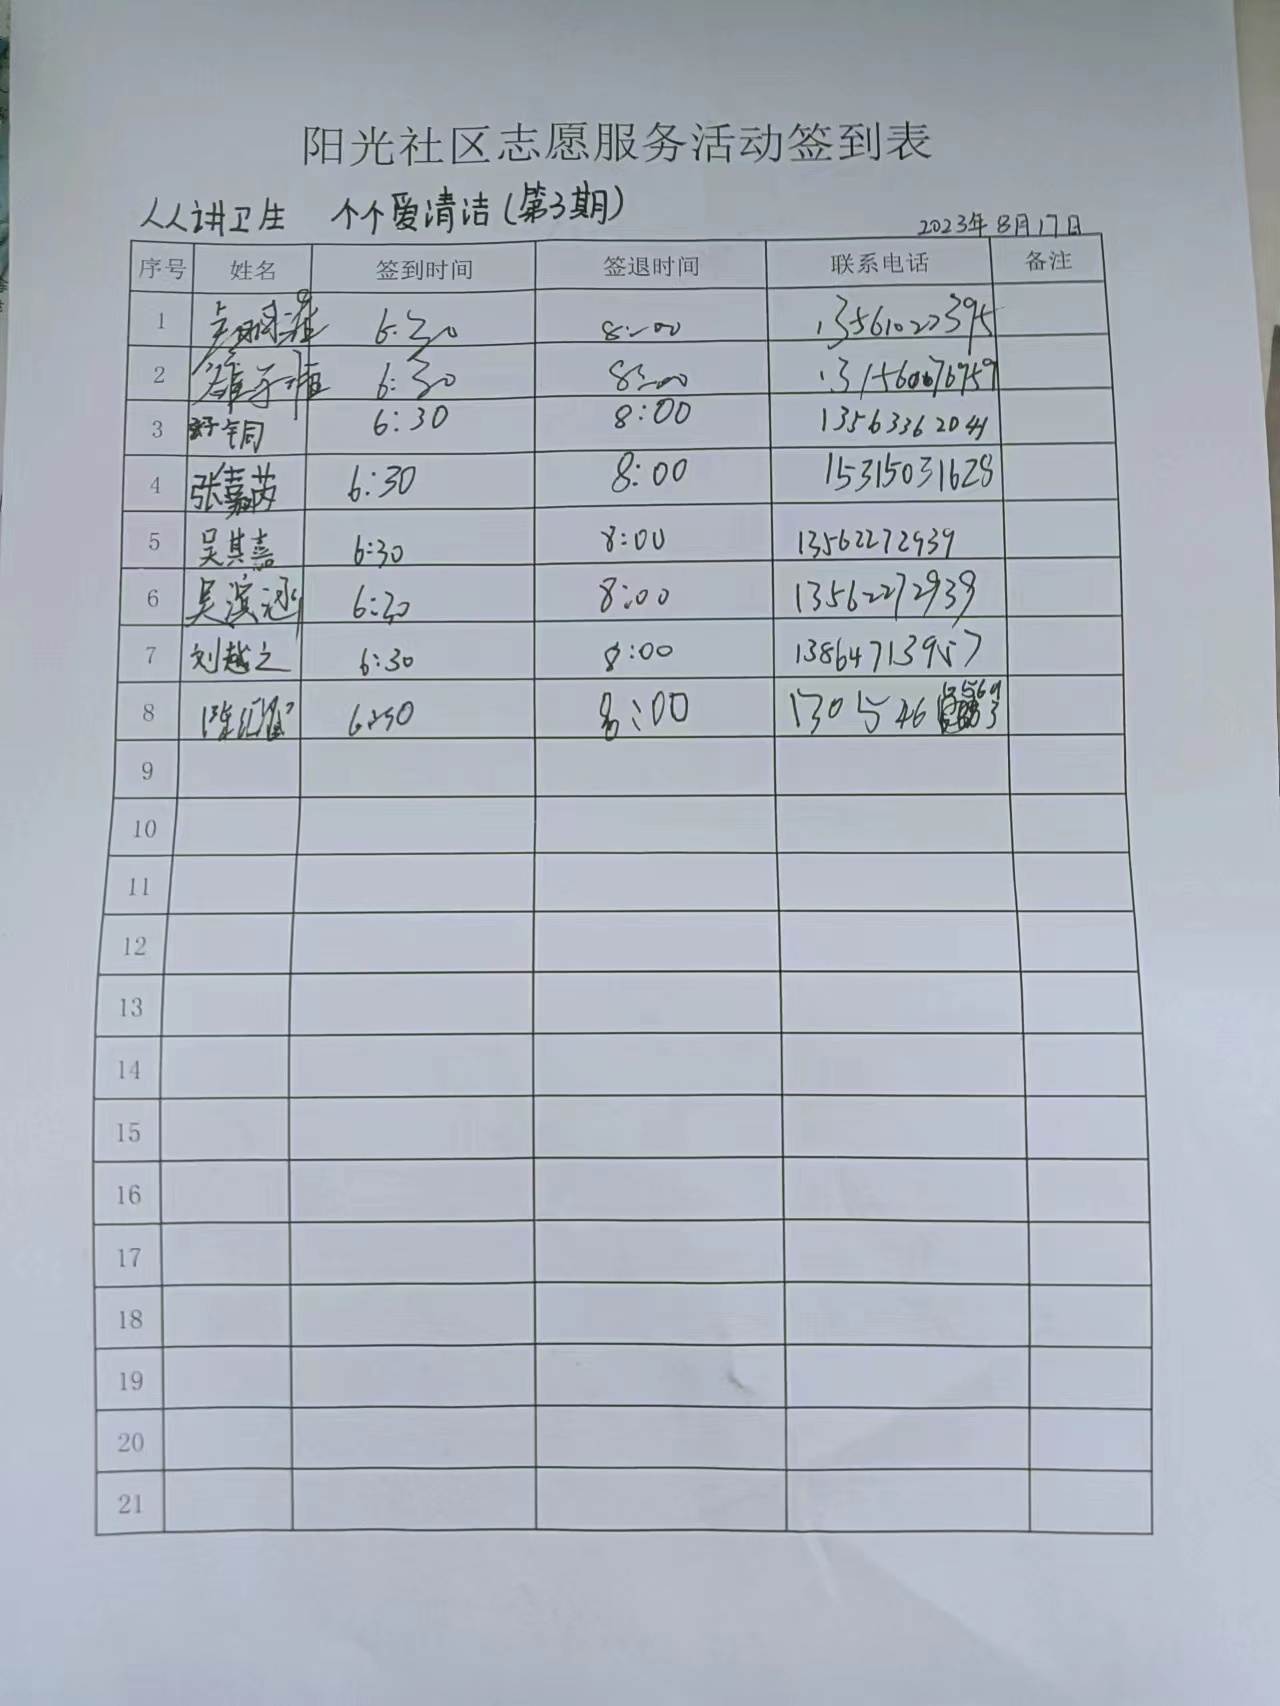 阳光社区志愿服务活动签到表
人人讲卫生 个个爱清洁(第3期)
2023年8月17日
序号 姓名 签到时间 签退时间 联系电话 备注
1 6:30 8:00 13561022395
2 6:30 8:00
3 6:30 8:00 13563362041
4 张嘉芮 6:30 8:00 15315031628
5 吴其嘉 6:30 8:00 13562272939
6 吴滨涵 6:30 8:00 13562272939
7 刘越之 6:30 8:00 13864713957
8 6:30 8:00 1305546
9
10
11
12
13
14
15
16
17
18
19
20
21